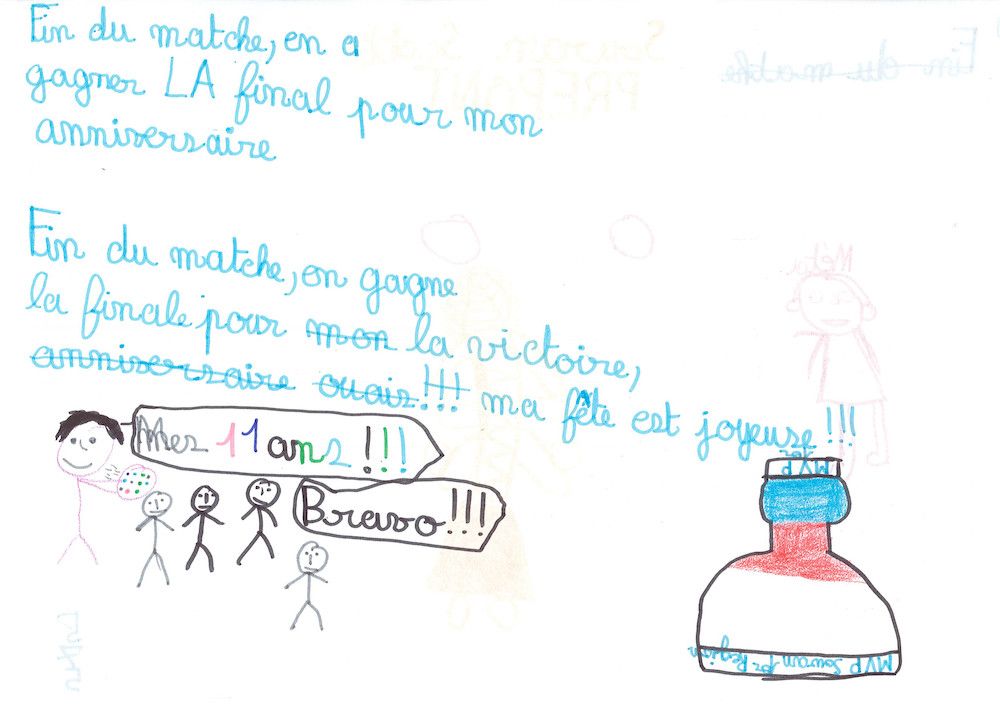 Fin du matche, en a
gagner LA final pour mon
anniversaire
Fin du matche, en gagne
la finale pour mon la victoire,
anniversaire ouais!!! ma fête est joyeuse !!!
Mes 11 ans !!!
Bravo!!!
MVP
MVP Souvrain Région